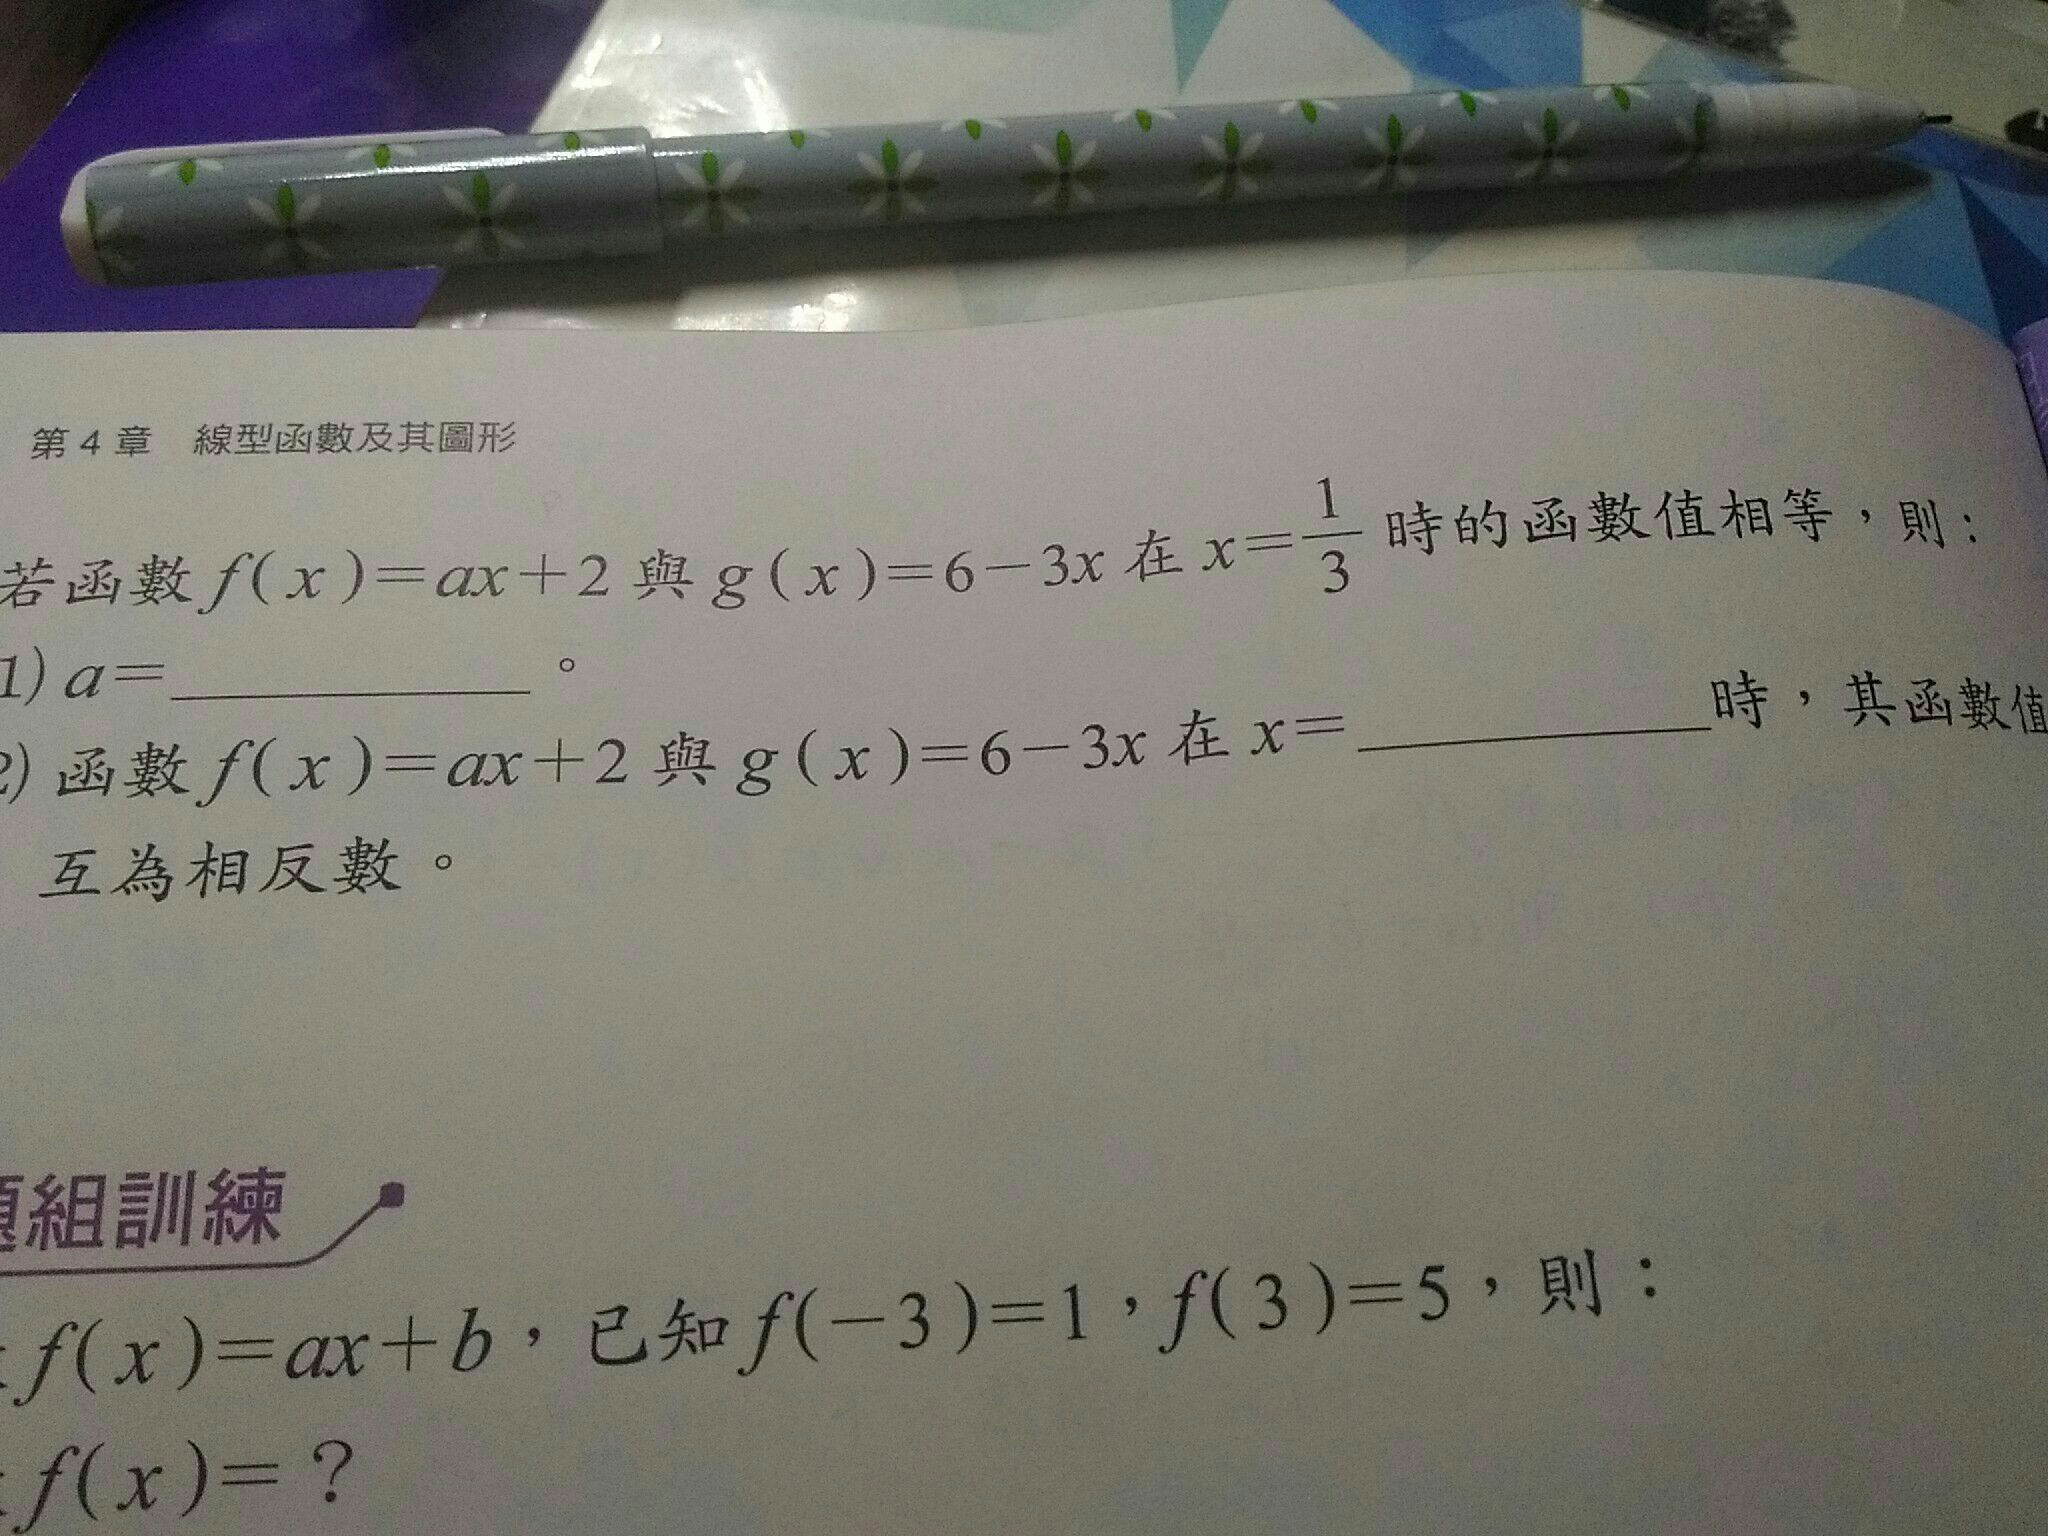 第 4 章 線型函數及其圖形
若函數 f(x)=ax+2 與 g(x)=6-3x 在 x=1/3 時的函數值相等，則：
1) a=__________。
2) 函數 f(x)=ax+2 與 g(x)=6-3x 在 x=__________時，其函數值
互為相反數。
題組訓練
f(x)=ax+b，已知 f(-3)=1，f(3)=5，則：
f(x)=？